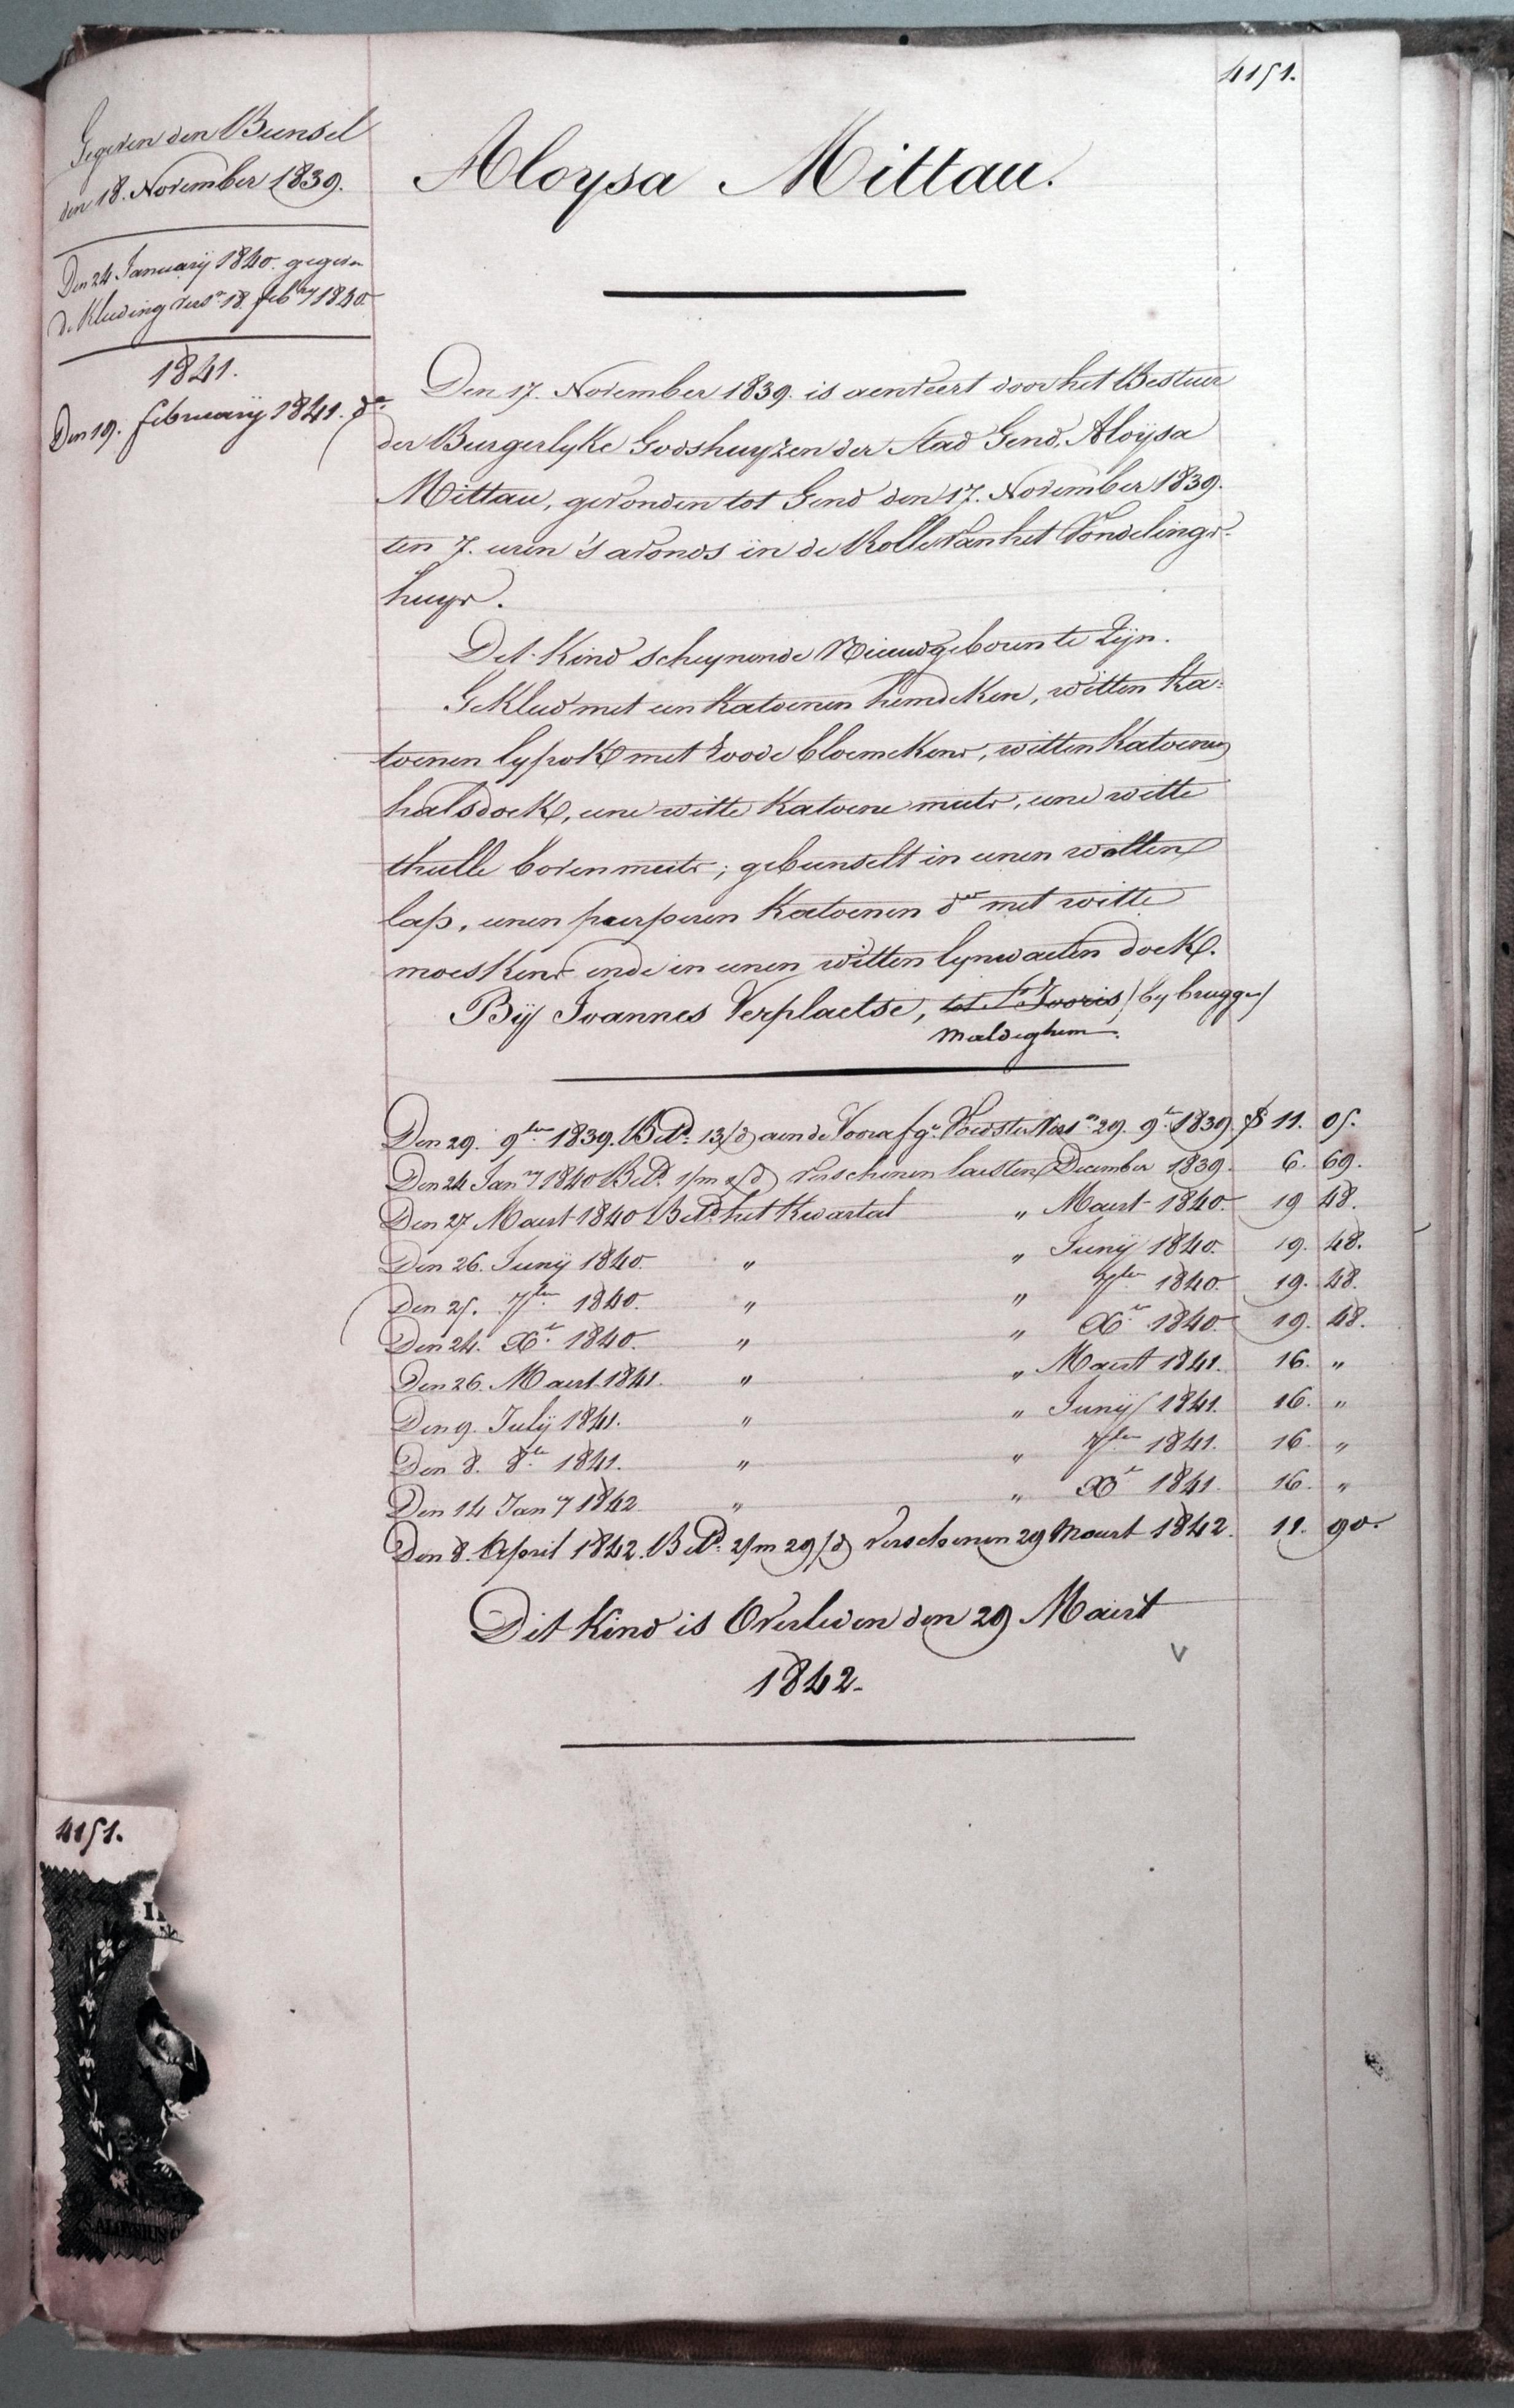 4151.
Gegeven den Bunsel
den 18. November 1839.
Den 24 January 1840. gegeven
de Kleeding vers.n 18. feb.ry 1840
1841.
Den 19. february 1841. d.o
Aloysa Mittau.
Den 17. November 1839. is aenveert door het Bestuer
der Burgerlyke Godshuyzen der Stad Gend, Aloÿsa
Mittau, gevonden tot Gend den 17. November 1839.
ten 7. uren 's avonds in de Rolle van het Vondelings-
huys.
Dit Kind scheynende Nieuwgeboren te Zÿn.
Gekleed met een Katoenen hemdeken, witten Ka=
toenen lyfrok met roode bloemekens, witten Katoenen
halsdoek, eene witte Katoene muts, eene witte
thulle boven muts; gebunselt in eenen wollen
lap, eenen peerperen Katoenen d.en met witte
moeskens ende in eenen witten lynwaeten doek.
Bÿ Joannes Verplaetse, tot S.t Jooris / by brugge /
Maldeghem.
Den 29. 9ber 1839. Bet.d 13/d aen de Vooraf g.e Voedster Vers.n 29. 9.r 1839. ₣ 11. 05.
Den 24 Jan.ry 1840 Bet.d 1/m 2/d Verschenen laesten December 1839. 6. 69.
Den 27 Maert 1840 Bet.d het Kwartal " Maert 1840. 19 48.
Den 26. Junÿ 1840. " " Junÿ 1840. 19. 48.
Den 25. 7ber 1840. " " 7ber 1840. 19. 48.
Den 24. X.r 1840. " " X.r 1840. 19. 48.
Den 26. Maert 1841. " " Maert 1841. 16. "
Den 9. Julÿ 1841. " " Junÿ 1841. 16. "
Den 8. 8.re 1841. " " 7ber 1841. 16. "
Den 14 Jan.ry 1842 " " X.r 1841. 16. "
Den 8. April 1842. Bet.d 2/m 29/d Verschenen 29 Maert 1842. 11. 90.
Dit Kind is Overleden den 29 Maert
1842.
4151.
ALOYSIUS